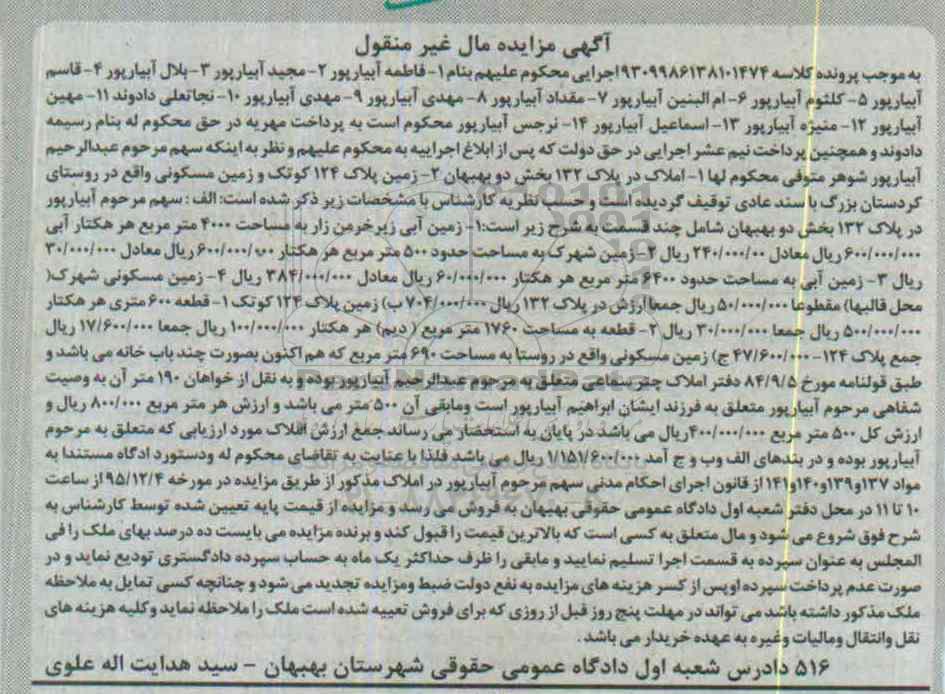 آگهی مزایده مال غیر منقول
به موجب پرونده کلاسه ۹۳۰۹۹۸۶۱۳۸۱۰۱۴۷۴ اجرایی محکوم علیهم بنام ۱- فاطمه آبیارپور ۲- مجید آبیارپور ۳- بلال آبیارپور ۴- قاسم
آبیارپور ۵- کلثوم آبیارپور ۶- ام البنین آبیارپور ۷- مقداد آبیارپور ۸- مهدی آبیارپور ۹- مهدی آبیارپور ۱۰- نجاتعلی دادوند ۱۱- مهین
آبیارپور ۱۲- منیژه آبیارپور ۱۳- اسماعیل آبیارپور ۱۴- نرجس آبیارپور محکوم است به پرداخت مهریه در حق محکوم له بنام رسیمه
دادوند و همچنین پرداخت نیم عشر اجرایی در حق دولت که پس از ابلاغ اجراییه به محکوم علیهم و نظر به اینکه سهم مرحوم عبدالرحیم
آبیارپور شوهر متوفی محکوم لها ۱- املاک در پلاک ۱۳۲ بخش دو بهبهان ۲- زمین پلاک ۱۲۴ کوتک و زمین مسکونی واقع در روستای
کردستان بزرگ با سند عادی توقیف گردیده است و حسب نظریه کارشناس با مشخصات زیر ذکر شده است: الف : سهم مرحوم آبیارپور
در پلاک ۱۳۲ بخش دو بهبهان شامل چند قسمت به شرح زیر است: ۱- زمین آبی زیرخرمن زار به مساحت ۴۰۰۰ متر مربع هر هکتار آبی
۶۰۰/۰۰۰/۰۰۰ ریال معادل ۲۴۰/۰۰۰/۰۰ ریال ۲- زمین شهرک به مساحت حدود ۵۰۰ متر مربع هر هکتار ۶۰۰/۰۰۰/۰۰۰ ریال معادل ۳۰/۰۰۰/۰۰۰
ریال ۳- زمین آبی به مساحت حدود ۶۴۰۰ متر مربع هر هکتار ۶۰/۰۰۰/۰۰۰ ریال معادل ۳۸۴/۰۰۰/۰۰۰ ریال ۴- زمین مسکونی شهرک(
محل قالبها) مقطوعا ۵۰/۰۰۰/۰۰۰ ریال جمعا ارزش در پلاک ۱۳۲ ریال ۷۰۴/۰۰۰/۰۰۰ ب) زمین پلاک ۱۲۴ کوتک ۱- قطعه ۶۰۰ متری هر هکتار
۵۰۰/۰۰۰/۰۰۰ ریال جمعا ۳۰/۰۰۰/۰۰۰ ریال ۲- قطعه به مساحت ۱۷۶۰ متر مربع ( دیم) هر هکتار ۱۰۰/۰۰۰/۰۰۰ ریال جمعا ۱۷/۶۰۰/۰۰۰ ریال
جمع پلاک ۱۲۴- ۴۷/۶۰۰/۰۰۰ ج) زمین مسکونی واقع در روستا به مساحت ۶۹۰ متر مربع که هم اکنون بصورت چند باب خانه می باشد و
طبق قولنامه مورخ ۸۴/۹/۵ دفتر املاک سماعی متعلق به مرحوم عبدالرحیم آبیارپور بوده و به نقل از خواهان ۱۹۰ متر آن به وصیت
شفاهی مرحوم آبیارپور متعلق به فرزند ایشان ابراهیم آبیارپور است ومابقی آن ۵۰۰ متر می باشد و ارزش هر متر مربع ۸۰۰/۰۰۰ ریال و
ارزش کل ۵۰۰ متر مربع ۴۰۰/۰۰۰/۰۰۰ ریال می باشد در پایان به استحضار می رساند جمع ارزش املاک مورد ارزیابی که متعلق به مرحوم
آبیارپور بوده و در بندهای الف وب و ج آمد ۱/۱۵۱/۶۰۰/۰۰۰ ریال می باشد فلذا با عنایت به تقاضای محکوم له ودستورد ادگاه مستندا به
مواد ۱۳۷و۱۳۹و۱۴۰و۱۴۱ از قانون اجرای احکام مدنی سهم مرحوم آبیارپور در املاک مذکور از طریق مزایده در مورخه ۹۵/۱۲/۴ از ساعت
۱۰ تا ۱۱ در محل دفتر شعبه اول دادگاه عمومی حقوقی بهبهان به فروش می رسد و مزایده از قیمت پایه تعیین شده توسط کارشناس به
شرح فوق شروع می شود و مال متعلق به کسی است که بالاترین قیمت را قبول کند و برنده مزایده می بایست ده درصد بهای ملک را فی
المجلس به عنوان سپرده به قسمت اجرا تسلیم نمایید و مابقی را ظرف حداکثر یک ماه به حساب سپرده دادگستری تودیع نماید و در
صورت عدم پرداخت سپرده اوپس از کسر هزینه های مزایده به نفع دولت ضبط ومزایده تجدید می شود و چنانچه کسی تمایل به ملاحظه
ملک مذکور داشته باشد می تواند در مهلت پنج روز قبل از روزی که برای فروش تعییه شده است ملک را ملاحظه نماید وکلیه هزینه های
نقل وانتقال ومالیات وغیره به عهده خریدار می باشد .
۵۱۶ دادرس شعبه اول دادگاه عمومی حقوقی شهرستان بهبهان - سید هدایت اله علوی